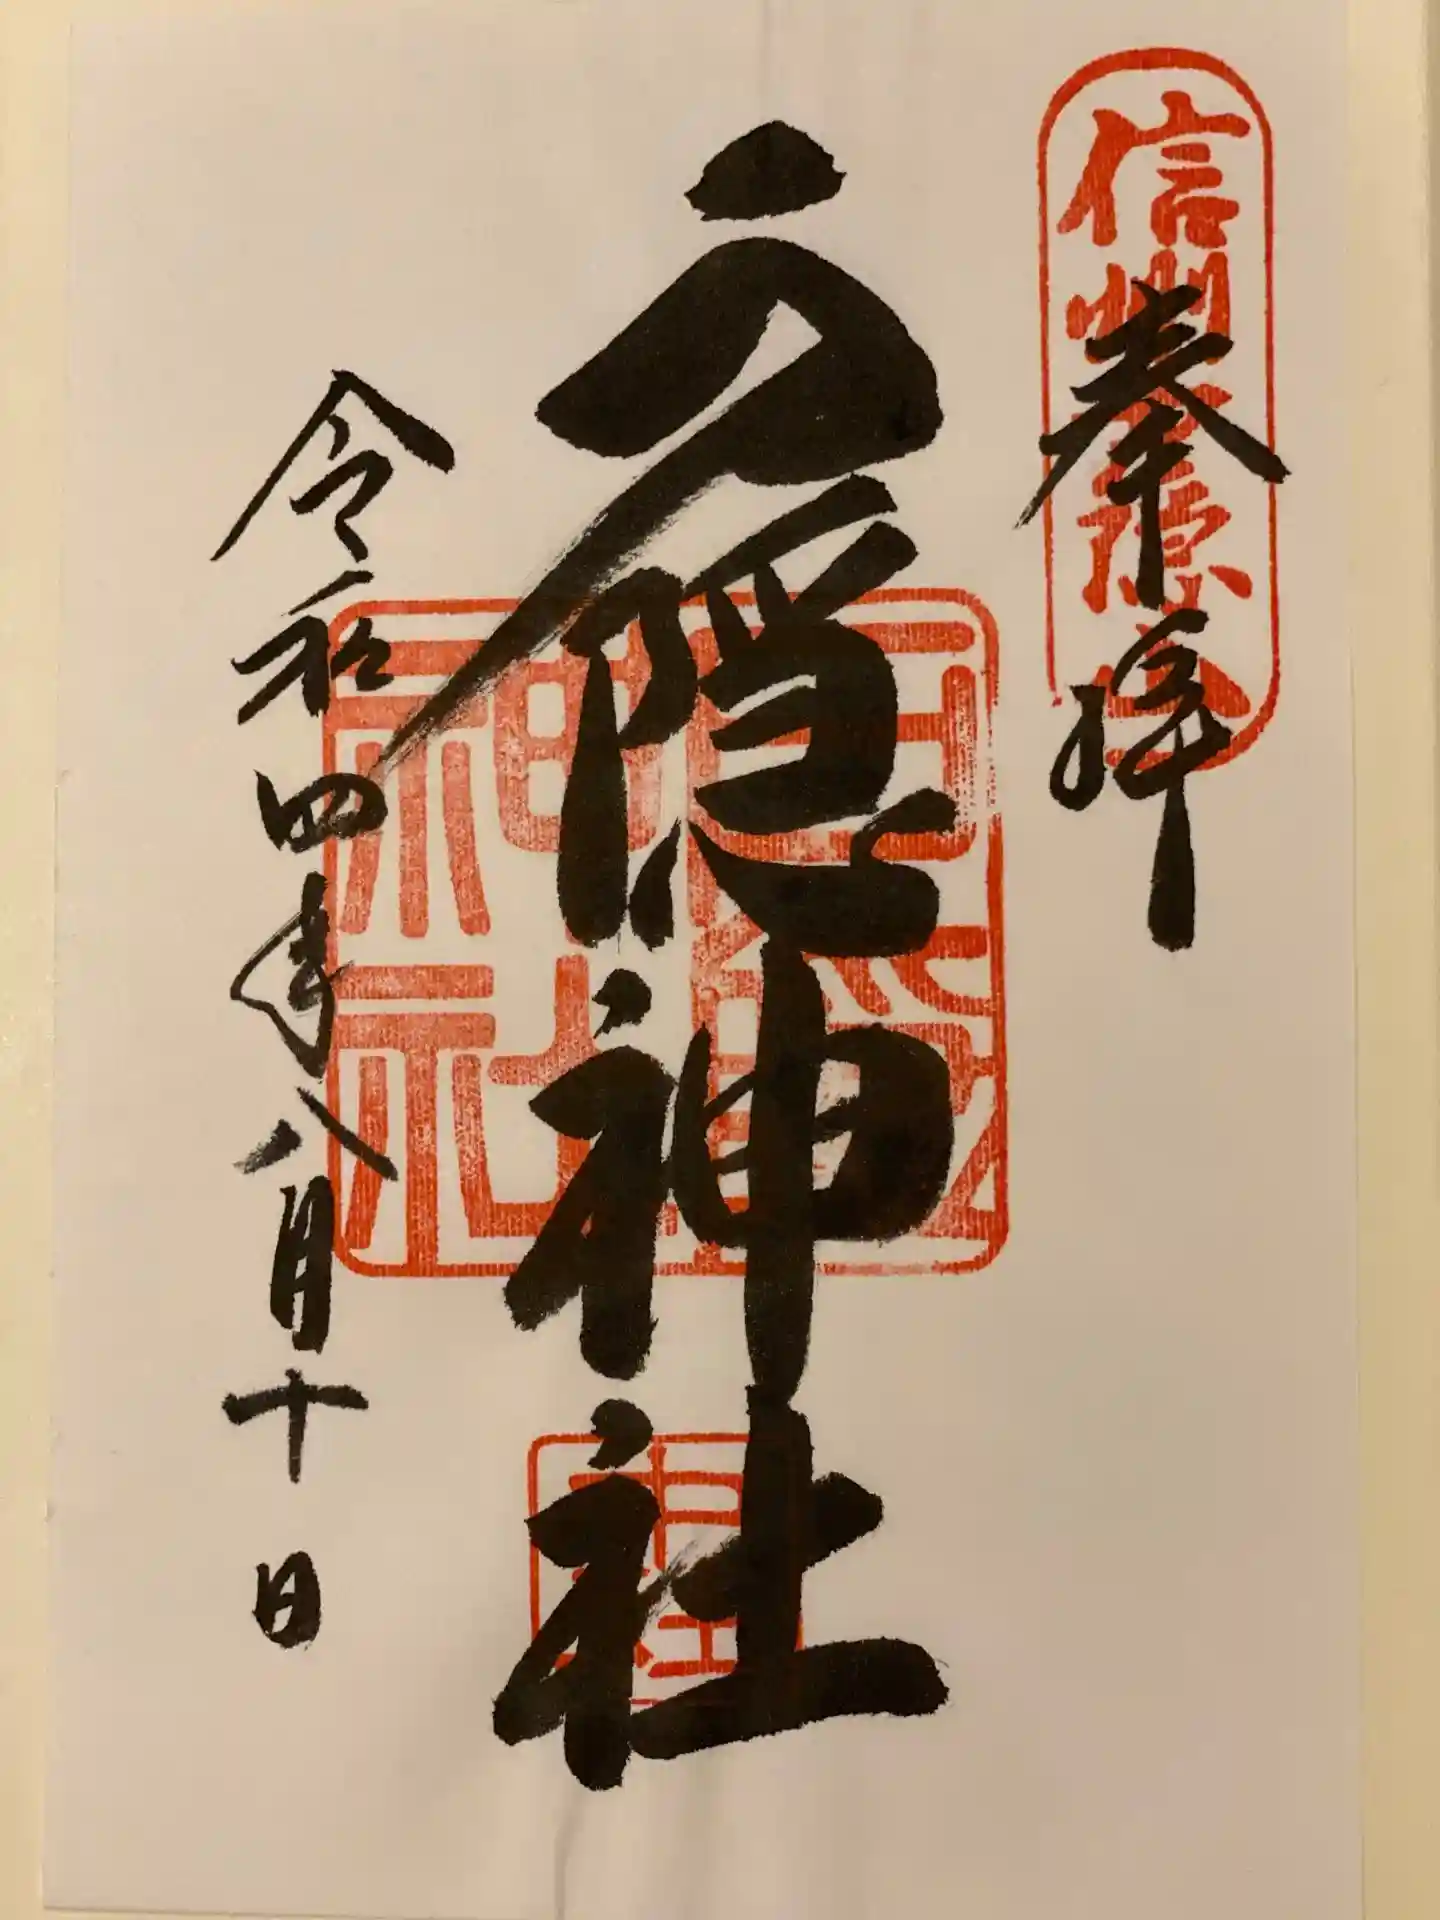 信州
奉拝
戸隠神社
戸隠神社
令和四年八月十日